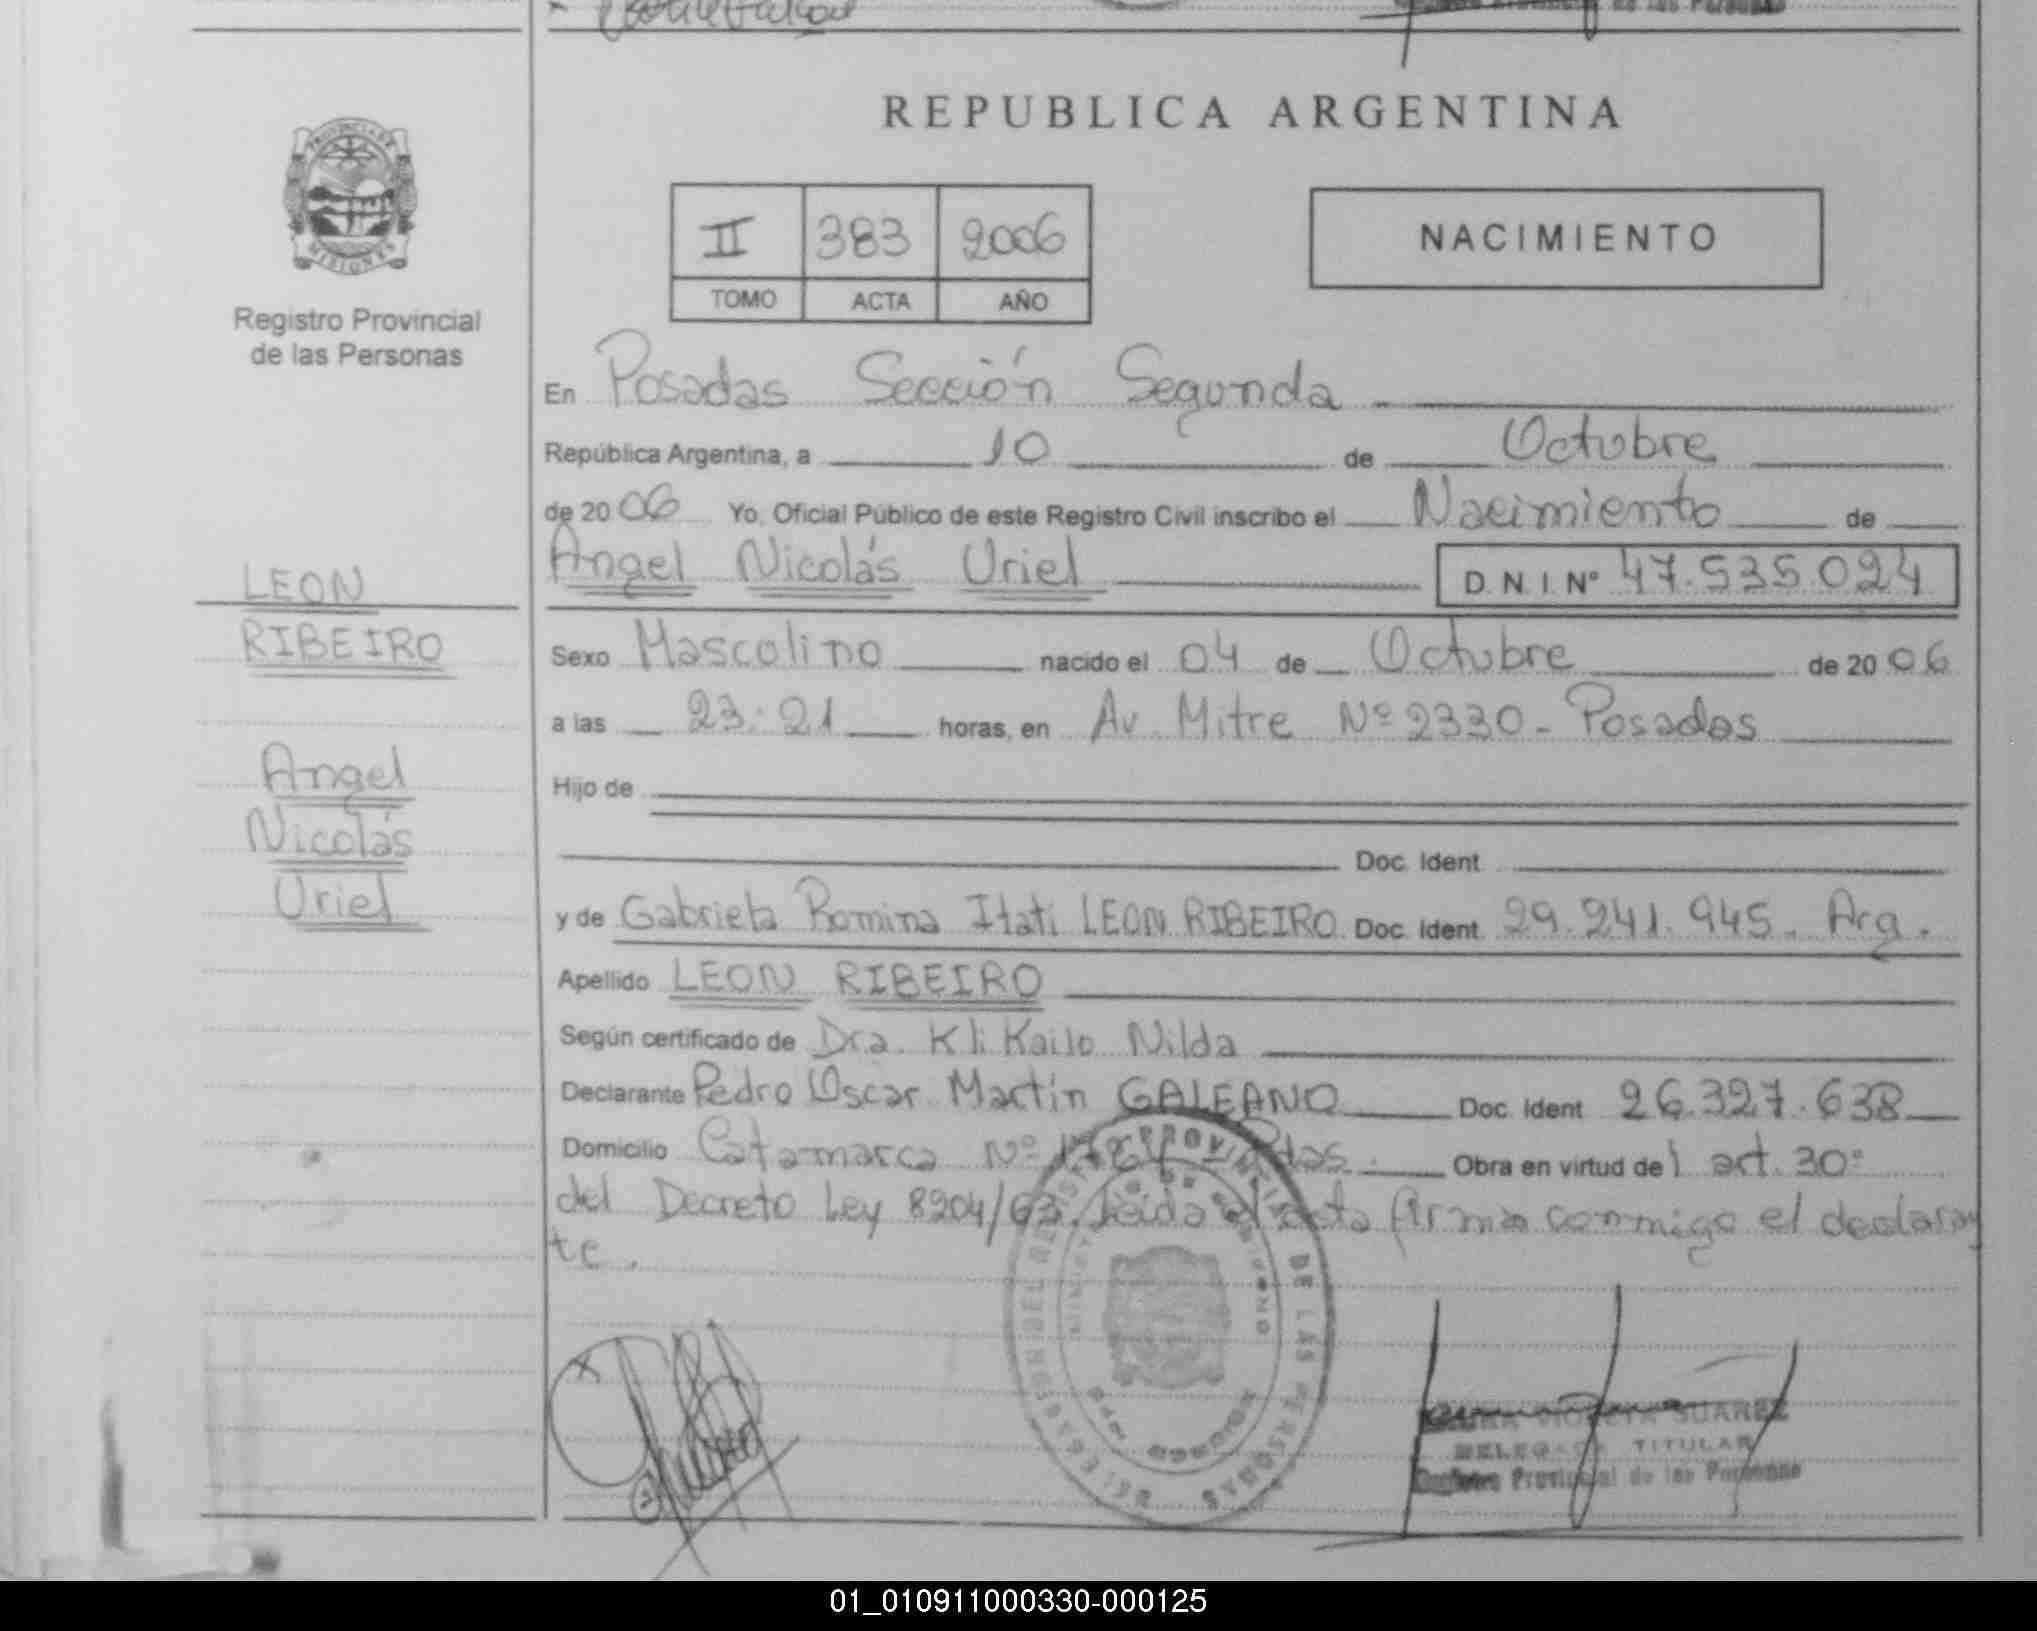 REPUBLICA ARGENTINA
PROVINCIA DE
MISIONES
Registro Provincial
de las Personas
II 383 2006
TOMO ACTA AÑO
NACIMIENTO
En Posadas Sección Segunda
República Argentina, a 10 de Octubre
de 2006 Yo, Oficial Público de este Registro Civil inscribo el Nacimiento de
Angel Nicolás Uriel D.N.I. Nº 47.535.024
LEON
RIBEIRO
Angel
Nicolás
Uriel
Sexo Mascolino nacido el 04 de Octubre de 2006
a las 23:21 horas, en Av. Mitre Nº 2330 - Posadas
Hijo de
Doc. Ident.
y de Gabriela Romina Itati LEON RIBEIRO Doc. Ident. 29.241.945. Arg.
Apellido LEON RIBEIRO
Según certificado de Dra. Kli Kailo Nilda
Declarante Pedro Oscar Martín GALEANO Doc. Ident 26.327.638
Domicilio Catamarca Nº Obra en virtud del art. 30º
del Decreto Ley 8204/63. Leida el acta firma conmigo el declaran
te.
SUAREZ
TITULAR
Registro Provincial de las Personas
01_010911000330-000125